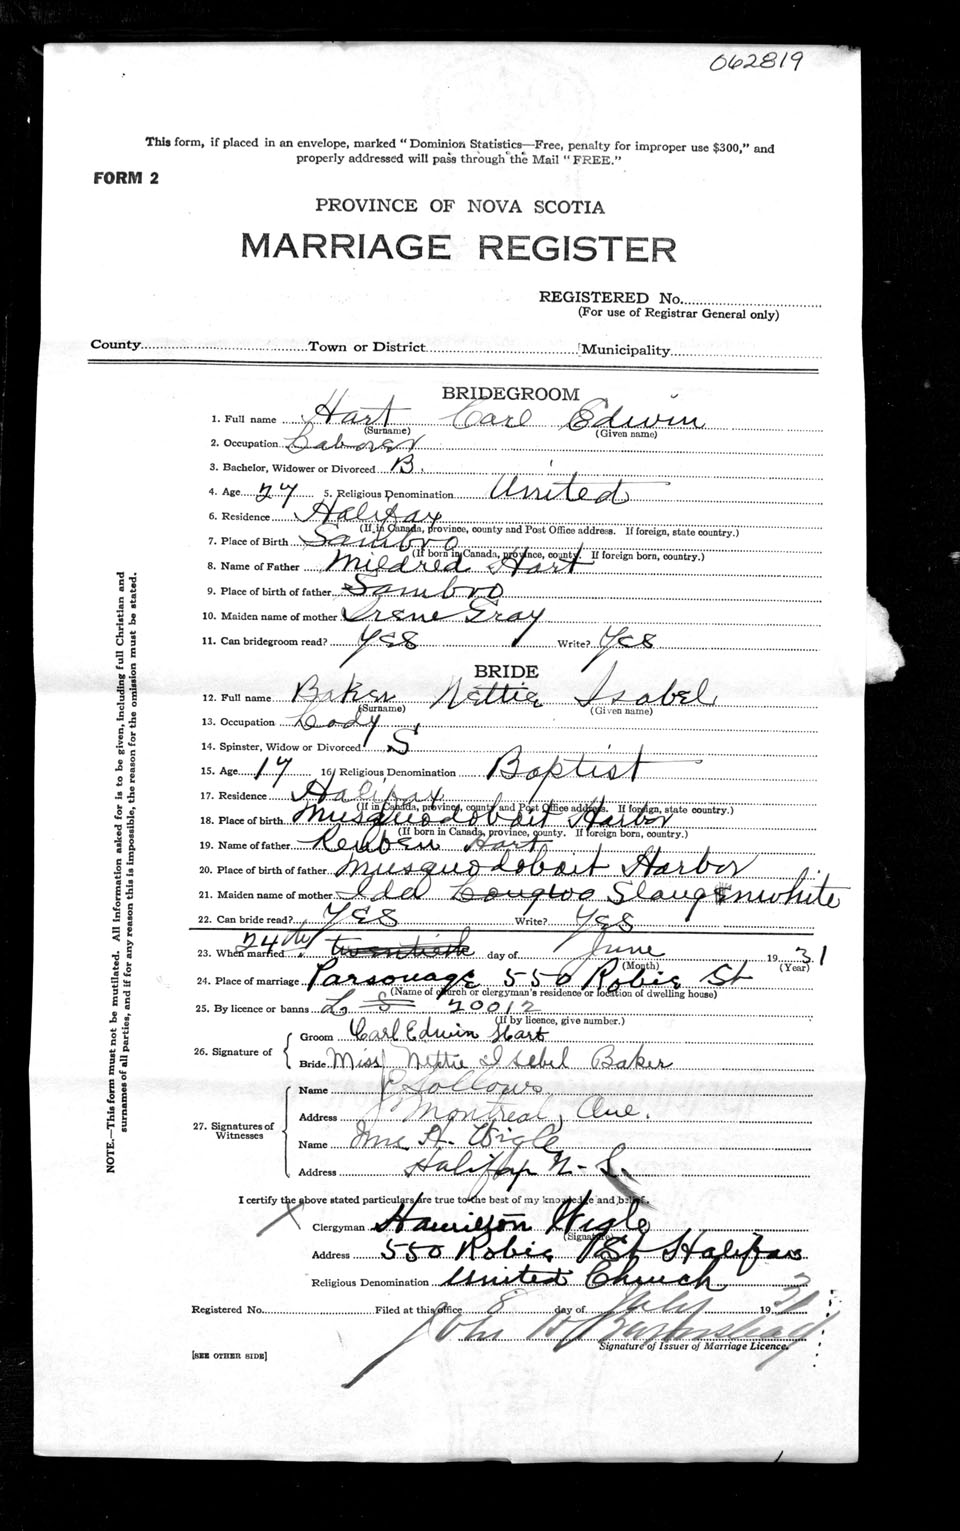 062819
This form, if placed in an envelope, marked "Dominion Statistics—Free, penalty for improper use $300," and
properly addressed will pass through the Mail "FREE."
FORM 2
PROVINCE OF NOVA SCOTIA
MARRIAGE REGISTER
REGISTERED No.
(For use of Registrar General only)
County Town or District Municipality
BRIDEGROOM
1. Full name Hart Carl Edwin
(Surname) (Given name)
2. Occupation Laborer
3. Bachelor, Widower or Divorced B.
4. Age 27 5. Religious Denomination United
6. Residence Halifax
(If in Canada, province, county and Post Office address. If foreign, state country.)
7. Place of Birth Sambro
(If born in Canada, province, county. If foreign born, country.)
8. Name of Father Mildred Hart
9. Place of birth of father Sambro
10. Maiden name of mother Irene Gray
11. Can bridegroom read? Yes Write? Yes
BRIDE
12. Full name Baker Nettie Isabel
(Surname) (Given name)
13. Occupation Lady
14. Spinster, Widow or Divorced S
15. Age 17 16. Religious Denomination Baptist
17. Residence Halifax
(If in Canada, province, county and Post Office address. If foreign, state country.)
18. Place of birth Musquodoboit Harbor
(If born in Canada, province, county. If foreign born, country.)
19. Name of father Reuben Hart
20. Place of birth of father Musquodoboit Harbor
21. Maiden name of mother Ida Slaugenwhite
22. Can bride read? Yes Write? Yes
23. When married 24th twentieth day of June 1931
(Month) (Year)
24. Place of marriage Parsonage 550 Robie St
(Name of church or clergyman's residence or location of dwelling house)
25. By licence or banns L S 20012
(If by licence, give number.)
26. Signature of
Groom Carl Edwin Hart
Bride Miss Nettie Isabel Baker
27. Signatures of Witnesses
Name Sollows
Address Montreal, Que.
Name Mrs H. Wigle
Address Halifax N-S.
I certify the above stated particulars are true to the best of my knowledge and belief.
Clergyman Hamilton Wigle
(Signature)
Address 550 Robie St Halifax
Religious Denomination United Church
Registered No. Filed at this office 8 day of July 1931
John
Signature of Issuer of Marriage Licence.
[SEE OTHER SIDE]
NOTE.—This form must not be mutilated. All information asked for is to be given, including full Christian and
surnames of all parties, and if for any reason this is impossible, the reason for the omission must be stated.